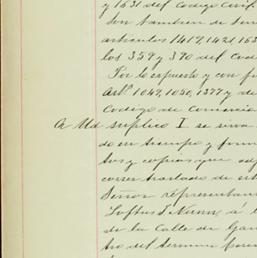 y 1631 del Codigo Civil
Son tambien de
articulos 1419, 1421, 163
los 359 y 390 del Cod
Por lo expuesto y con
Artˢ 1049, 1050, 1377 y de
Codigo de Comercio
A Ud suplico I se sirva
do en tiempo y forma
tos y copias que
correr traslado de
Señor representan
Loftus I Nunn, á
de la Calle de
tro del termino